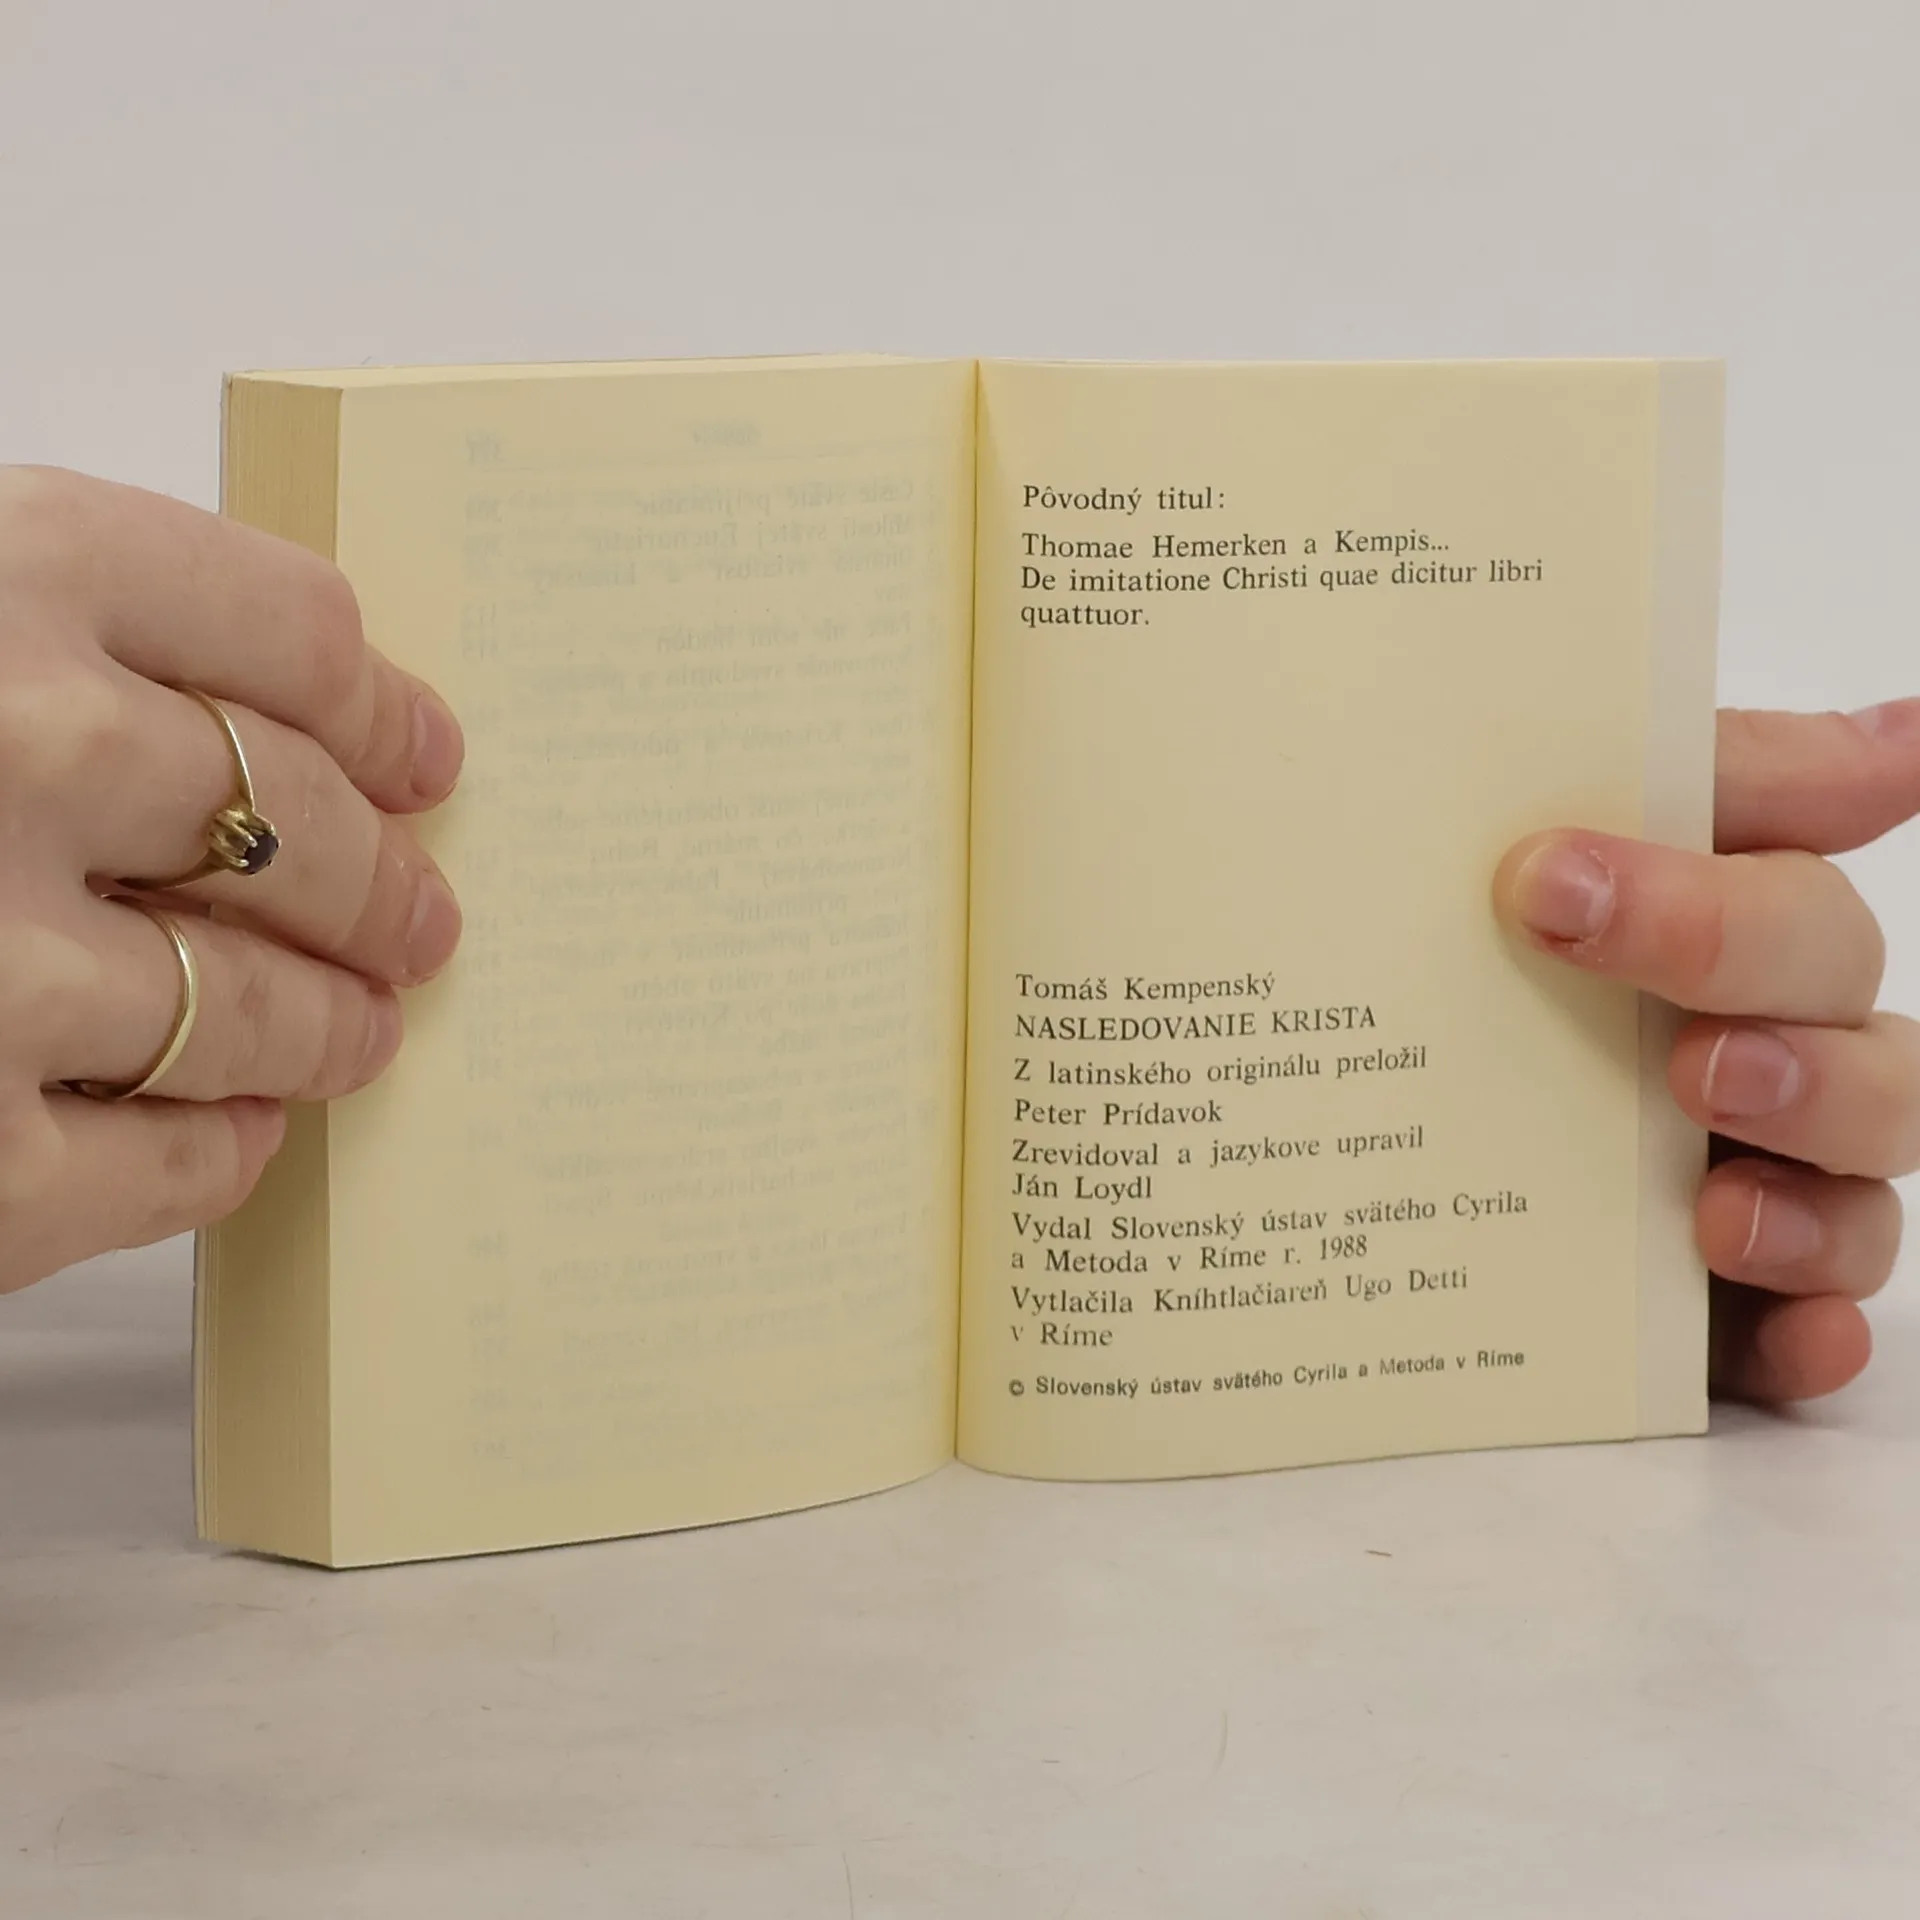 Pôvodný titul:
Thomae Hemerken a Kempis...
De imitatione Christi quae dicitur libri
quattuor.
Tomáš Kempenský
NASLEDOVANIE KRISTA
Z latinského originálu preložil
Peter Prídavok
Zrevidoval a jazykove upravil
Ján Loydl
Vydal Slovenský ústav svätého Cyrila
a Metoda v Ríme r. 1988
Vytlačila Kníhtlačiareň Ugo Detti
v Ríme
© Slovenský ústav svätého Cyrila a Metoda v Ríme